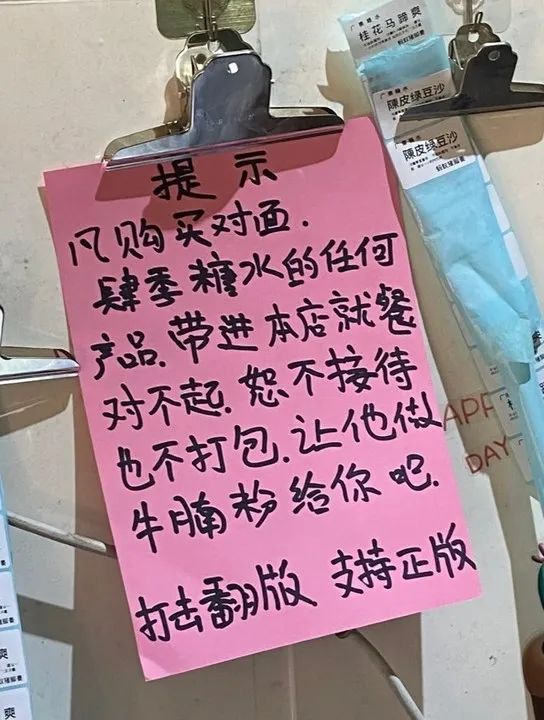 提示
凡购买对面.
肆季糖水的任何
产品.带进本店就餐
对不起.恕不接待
也不打包.让他做
牛腩粉给你吧.
打击翻版 支持正版
桂花马蹄爽
陳皮绿豆沙
陳皮绿豆沙
APP
DAY